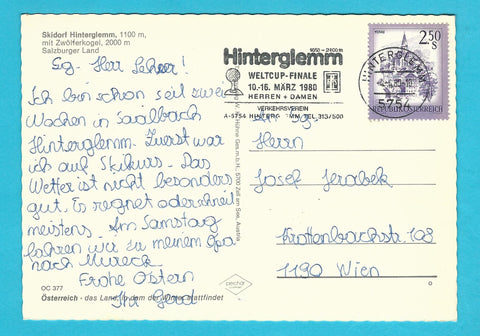 Skidorf Hinterglemm, 1100 m,
mit Zwölferkogel, 2000 m
Salzburger Land
Sg. Herr Lehrer!
Ich bin schon seit zwei
Wochen in Saalbach
Hinterglemm. Zuerst war
ich auf Skikurs. Das
Wetter ist nicht besonders
gut. Es regnet oder schneit
meistens. Am Samstag
fahren wir zu meinem Opa
nach Mureck.
Frohe Ostern
Ihr Gerd
OC 377
Österreich - das Land, in dem der Winter stattfindet
Hinterglemm
1050-2100m
WELTCUP-FINALE
10.-16. MÄRZ 1980
HERREN + DAMEN
VERKEHRSVEREIN
A-5754 HINTERGLEMM TEL 313/500
HINTERGLEMM
5754
2.50
S
REPUBLIK ÖSTERREICH
Sg.
Herrn
Josef Jerabek
Krottenbachstr. 108
1190 Wien